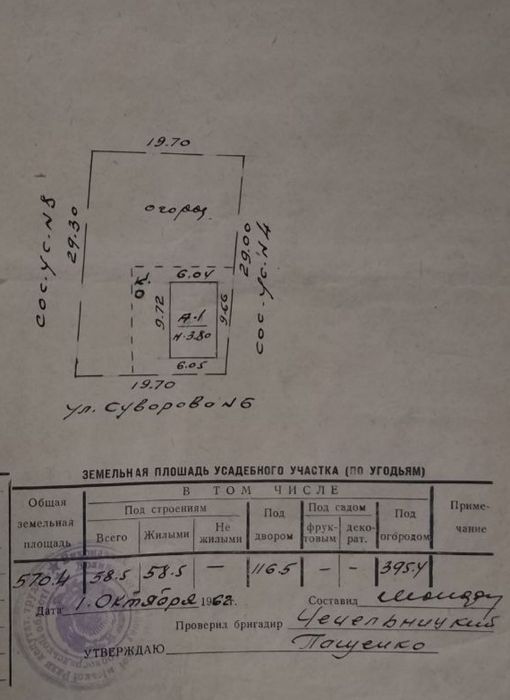 19.70
огород
сос. ус. N 8
29.30
29.00
сос. ус. N 4
ОК.
6.04
9.72
9.66
А-1
Н-3.80
6.05
19.70
ул. Суворово N 6
ЗЕМЕЛЬНАЯ ПЛОЩАДЬ УСАДЕБНОГО УЧАСТКА (ПО УГОДЬЯМ)
Общая земельная площадь
В ТОМ ЧИСЛЕ
Примечание
Под строениями
Под двором
Под садом
Под огородом
Всего
Жилыми
Не жилыми
фруктовым
декорат.
570.4 58.5 58.5 — 116.5 — — 395.4
Дата 1. Октября 1962 г. Составил
Проверил бригадир Чечельницкий
УТВЕРЖДАЮ Пащенко